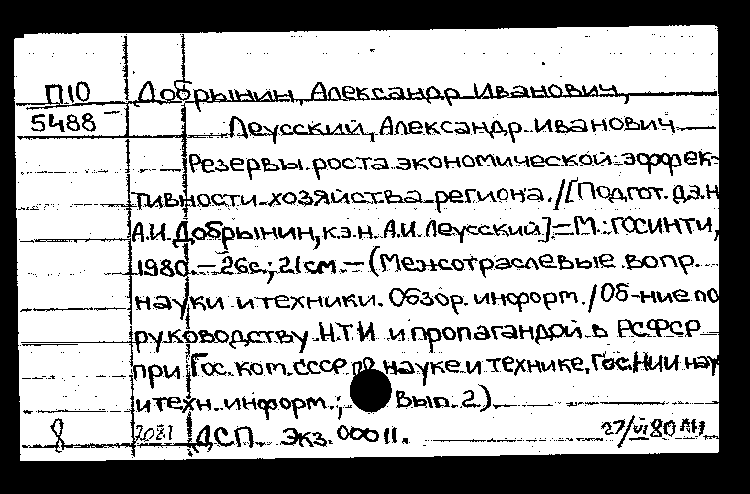 П10 Добрынин, Александр Иванович,
5488 Леусский, Александр Иванович
Резервы роста экономической эффек-
тивности хозяйства региона. / [Подгот. д.э.н
А.И. Добрынин, к.э.н. А.И. Леусский] – М.: ГОСИНТИ,
1980. – 26 с.; 21 см. – (Межотраслевые вопр.
науки и техники. Обзор. информ. / Об-ние по
руководству НТИ и пропагандой в РСФСР
при Гос. ком. СССР по науке и технике, Гос. НИИ науч
и техн. информ.; Вып. 2).
8 ДСП. Экз. 00011. 27/VI 80